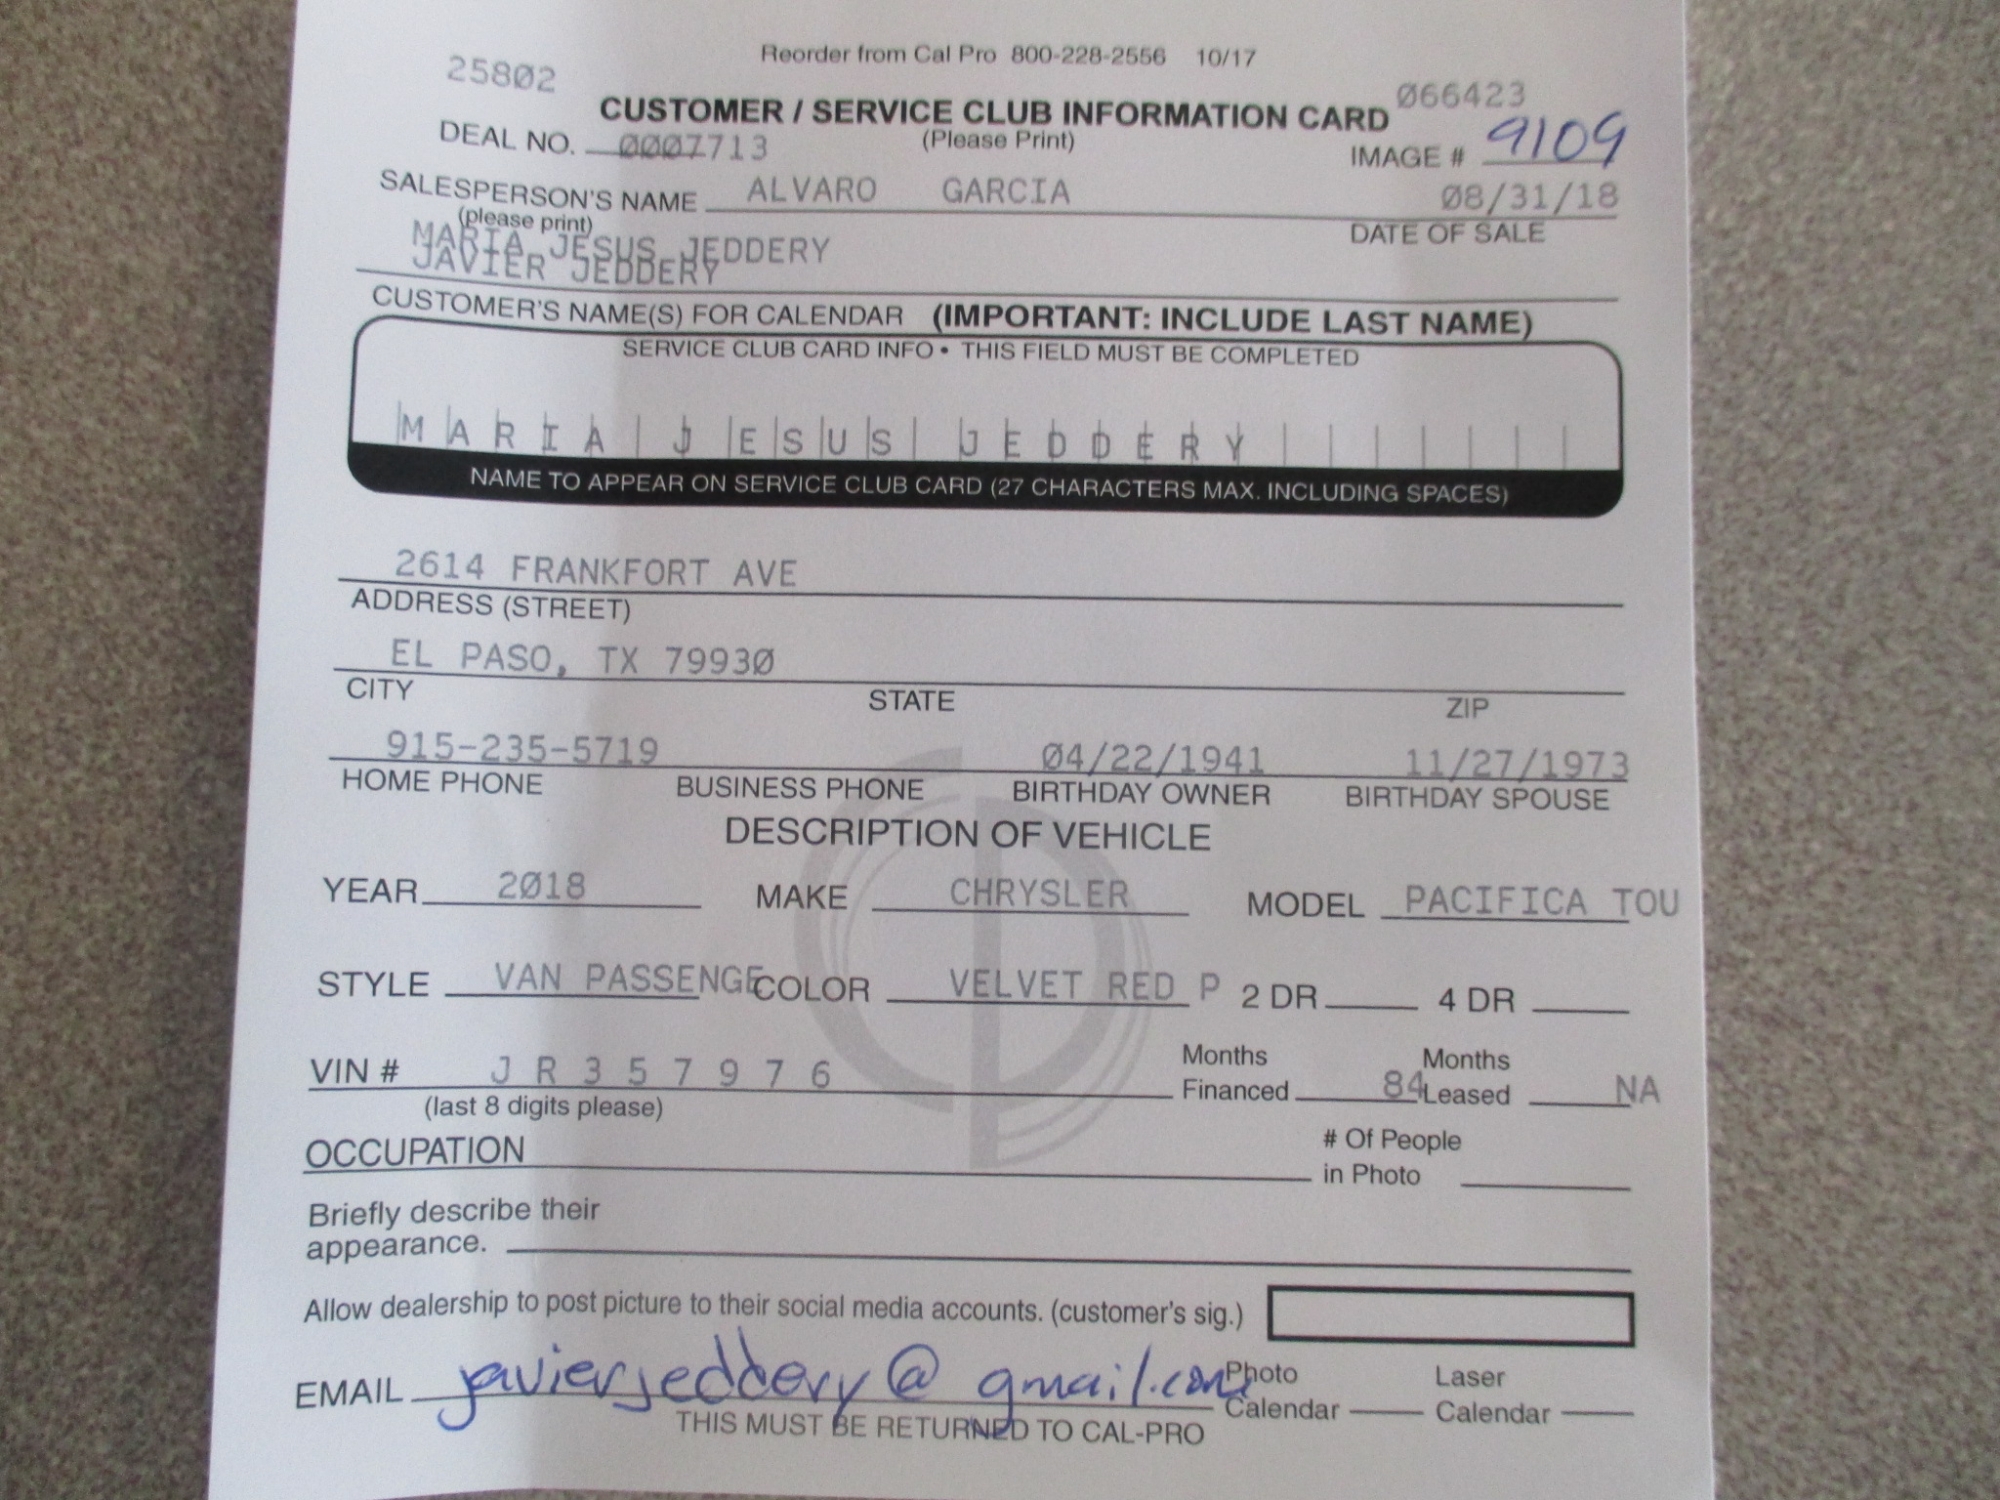 Reorder from Cal Pro 800-228-2556 10/17
25802
066423
CUSTOMER / SERVICE CLUB INFORMATION CARD
DEAL NO. 0007713 (Please Print) IMAGE # 9109
SALESPERSON'S NAME ALVARO GARCIA 08/31/18
(please print) DATE OF SALE
MARIA JESUS JEDDERY
JAVIER JEDDERY
CUSTOMER'S NAME(S) FOR CALENDAR (IMPORTANT: INCLUDE LAST NAME)
SERVICE CLUB CARD INFO • THIS FIELD MUST BE COMPLETED
MARIA JESUS JEDDERY
NAME TO APPEAR ON SERVICE CLUB CARD (27 CHARACTERS MAX. INCLUDING SPACES)
2614 FRANKFORT AVE
ADDRESS (STREET)
EL PASO, TX 79930
CITY STATE ZIP
915-235-5719 04/22/1941 11/27/1973
HOME PHONE BUSINESS PHONE BIRTHDAY OWNER BIRTHDAY SPOUSE
DESCRIPTION OF VEHICLE
YEAR 2018 MAKE CHRYSLER MODEL PACIFICA TOU
STYLE VAN PASSENGE COLOR VELVET RED P 2 DR 4 DR
Months Months
VIN # J R 3 5 7 9 7 6 Financed 84 Leased NA
(last 8 digits please)
OCCUPATION # Of People
in Photo
Briefly describe their
appearance.
Allow dealership to post picture to their social media accounts. (customer's sig.)
EMAIL javierjeddery@gmail.com Photo Laser
Calendar Calendar
THIS MUST BE RETURNED TO CAL-PRO